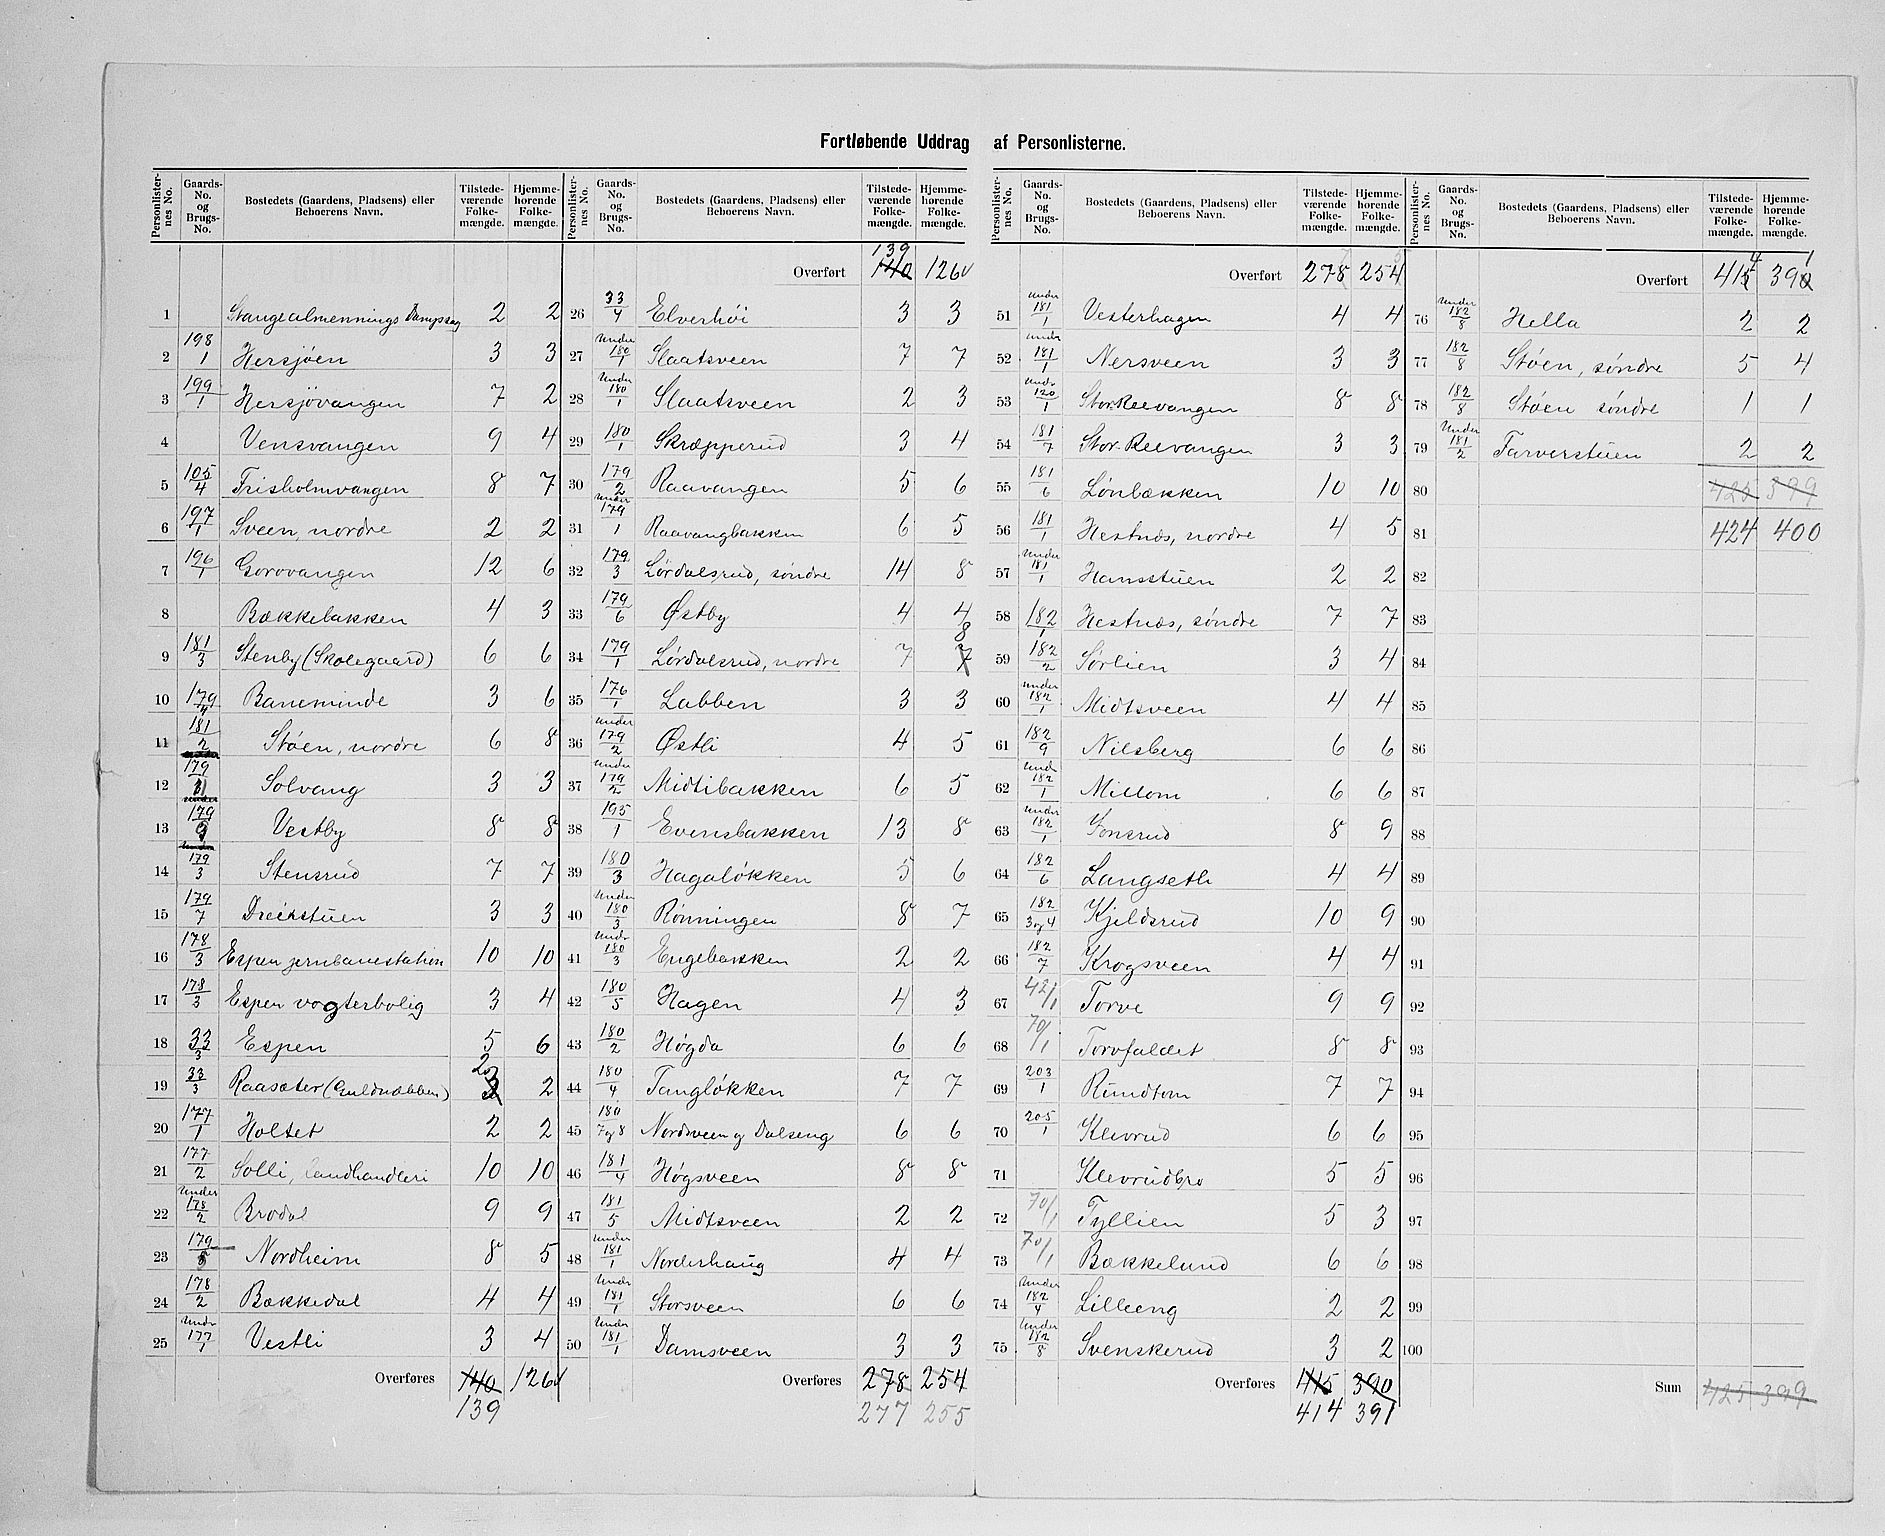 Fortløbende Uddrag af Personlisterne.
Personlisternes No. Gaards-No. og Brugs-No. Bostedets (Gaardens, Pladsens) eller Beboerens Navn. Tilstedeværende Folkemængde. Hjemmehørende Folkemængde.
Overført 139 140 126
1 Stangealmennings Dampsag 2 2
2 198/1 Hersjøen 3 3
3 199/1 Hersjövangen 7 2
4 Vensvangen 9 4
5 105/4 Frisholmvangen 8 7
6 197/1 Sveen, nordre 2 2
7 196/1 Gorovangen 12 6
8 Bækkebakken 4 3
9 181/3 Stenby (Skolegaard) 6 6
10 179/4 Baneminde 3 6
11 181/2 Støen, nordre 6 8
12 179 Solvang 3 3
13 under 179/9 Vestby 8 8
14 under 179/3 Stensrud 7 7
15 179/7 Dreiestuen 3 3
16 178/3 Espen jernbanestation 10 10
17 178/3 Espen vogterbolig 3 4
18 33/3 Espen 5 6
19 33/3 Raasæter (Guldnæbben) 2 3 2
20 177/1 Holtet 2 2
21 177/2 Solli, landhandleri 10 10
22 Under 178/2 Brodal 9 9
23 179/5 Nordheim 8 5
24 178/2 Bækkedal 4 4
25 Undr 177/1 Vestli 3 4
Overføres 140 126
139
26 33/4 Elverhöi 3 3
27 Under 180/1 Slaatsveen 7 7
28 Under 180/1 Slaatsveen 2 3
29 180/1 Skræpperud 3 4
30 179/2 Raavangen 5 6
31 under 179/1 Raavangbakken 6 5
32 179/3 Lørdalsrud, søndre 14 8
33 179/6 Østby 4 4
34 179/1 Lørdalsrud, nordre 7 8 7
35 176/1 Labben 3 3
36 under 179/2 Østli 4 5
37 under 179/2 Midtibakken 6 5
38 195/1 Evensbakken 13 8
39 180/3 Hagaløkken 5 6
40 Under 180/3 Rønningen 8 7
41 Undr 180/3 Engebakken 2 2
42 180/5 Hagen 4 3
43 180/2 Høgda 6 6
44 180/4 Tangløkken 7 7
45 180/7og8 Nordsveen og Dalseng 6 6
46 181/4 Høgsveen 8 8
47 181/5 Midtsveen 2 2
48 Under 181/1 Norderhaug 4 4
49 Undr 181/1 Storsveen 6 6
50 Under 181/1 Damsveen 3 3
Overføres 278 254
277 255
Overført 278 254
51 under 181/1 Vesterhagen 4 4
52 undr 181/1 Nersveen 3 3
53 Undr 120/1 Stor Reevangen 8 8
54 181/7 Stor-Reevangen 3 3
55 181/6 Lønbækken 10 10
56 181/1 Hestnæs, nordre 4 5
57 Under 181/1 Hansstuen 2 2
58 182/1 Hestnæs, søndre 7 7
59 182/2 Sørlien 3 4
60 under 182/1 Midtsveen 4 4
61 182/9 Nilsberg 6 6
62 Undr 182/1 Millom 6 6
63 under 182/1 Jonsrud 8 9
64 182/6 Langseth 4 4
65 182/3og4 Kjeldsrud 10 9
66 182/7 Krogsveen 4 4
67 42/1 Torve 9 9
68 70/1 Torvfaldet 8 8
69 203/1 Rundtom 7 7
70 205/1 Klevrud 6 6
71 Klevrudbro 5 5
72 70/1 Tyllien 5 3
73 70/1 Bækkelund 6 6
74 Under 182/4 Lilleeng 2 2
75 Under 182/8 Svenskerud 3 2
Overføres 415 390
414 391
Overført 415 4 390 1
76 Under 182/8 Hella 2 2
77 182/8 Støen, søndre 5 4
78 182/8 Støen søndre 1 1
79 Under 181/2 Farverstuen 2 2
80 425 399
81 424 400
82
83
84
85
86
87
88
89
90
91
92
93
94
95
96
97
98
99
100
Sum 425 399